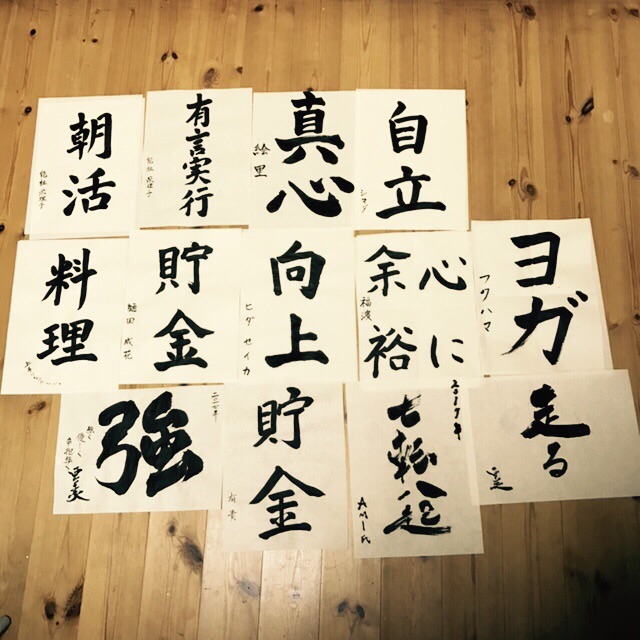 朝活
有言実行
真心
絵里
自立
シマダ
料理
貯金
堀田 成花
向上
ヒダ セイカ
心に
余裕
福濱
ヨガ
フクハマ
強
貯金
有貴
2017年
七転八起
走る